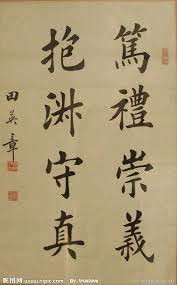 篤禮崇義
抱淑守真
田英章
昵图网 www.nipic.com
By: truelove